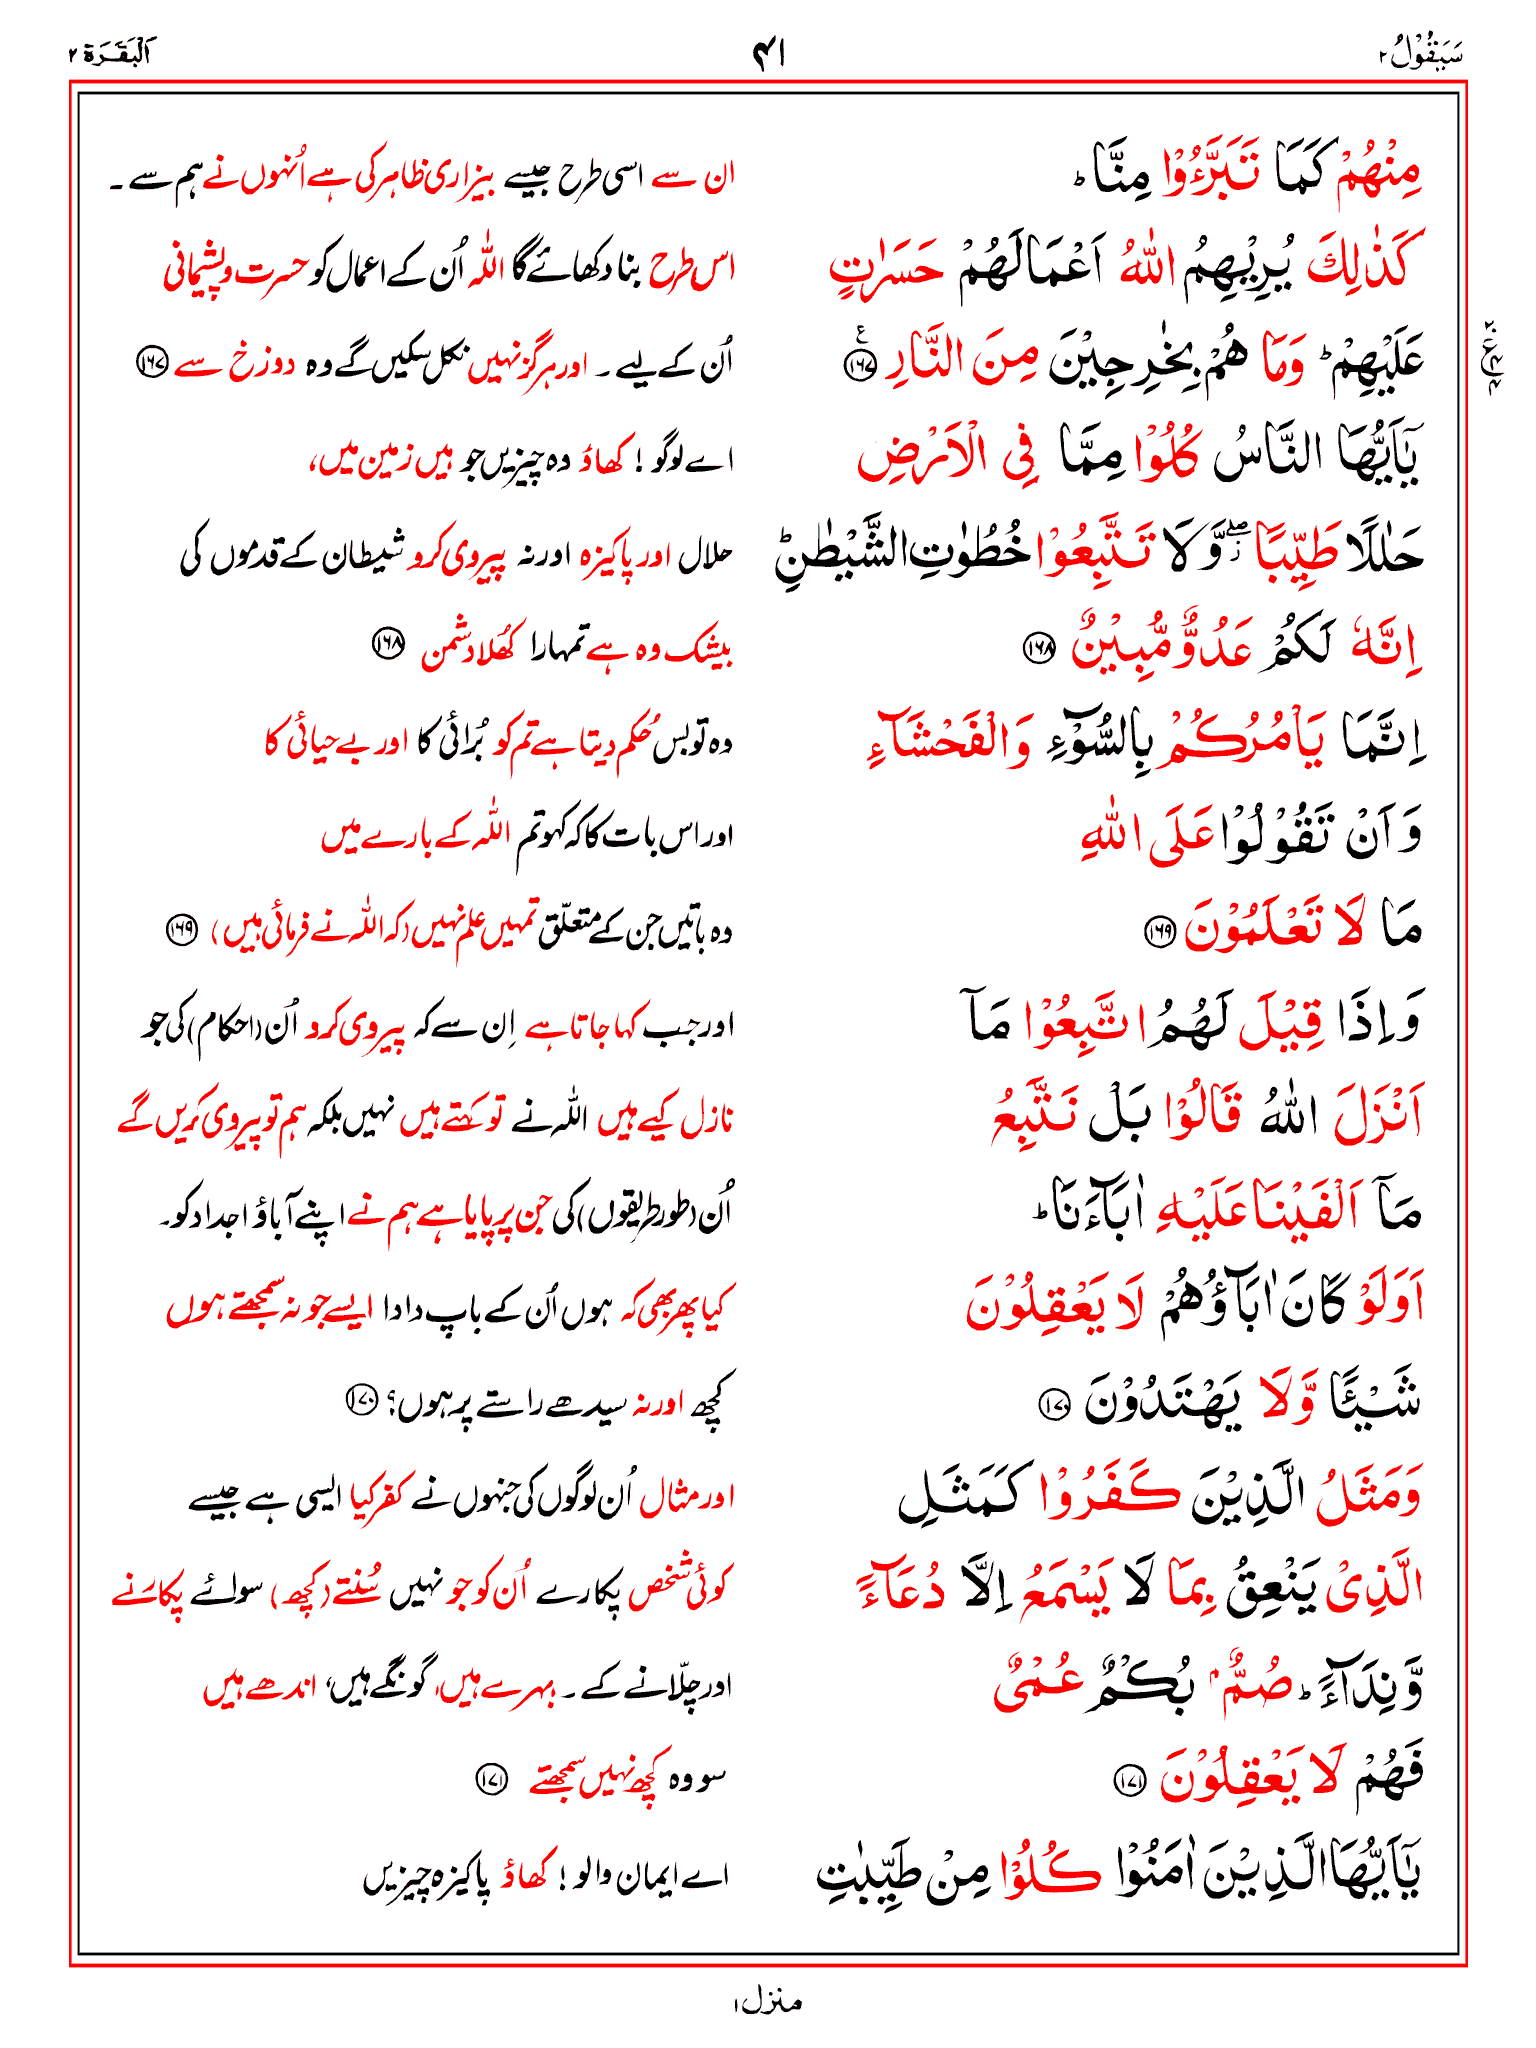 سَيَقُوْلُ ٢
٤١
اَلْبَقَرَة ٢
مِنْهُمْ كَمَا تَبَرَّءُوْا مِنَّا ؕ
ان سے اسی طرح جیسے بیزاری ظاہر کی ہے اُنہوں نے ہم سے ۔
كَذٰلِكَ يُرِيْهِمُ اللّٰهُ اَعْمَالَهُمْ حَسَرٰتٍ
اس طرح بنا دکھائے گا اللہ اُن کے اعمال کو حسرت و پشیمانی
عَلَيْهِمْ ؕ وَمَا هُمْ بِخٰرِجِيْنَ مِنَ النَّارِ ۧ ١٦٧
اُن کے لیے ۔ اور ہرگز نہیں نکل سکیں گے وہ دوزخ سے ١٦٧
يٰۤاَيُّهَا النَّاسُ كُلُوْا مِمَّا فِى الْاَرْضِ
اے لوگو ! کھاؤ وہ چیزیں جو ہیں زمین میں،
حَلٰلًا طَيِّبًا ۖ وَّلَا تَتَّبِعُوْا خُطُوٰتِ الشَّيْطٰنِ ؕ
حلال اور پاکیزہ اور نہ پیروی کرو شیطان کے قدموں کی
اِنَّهٗ لَكُمْ عَدُوٌّ مُّبِيْنٌ ١٦٨
بیشک وہ ہے تمہارا کھُلا دشمن ١٦٨
اِنَّمَا يَاْمُرُكُمْ بِالسُّوْٓءِ وَالْفَحْشَآءِ
وہ تو بس حُکم دیتا ہے تم کو بُرائی کا اور بے حیائی کا
وَاَنْ تَقُوْلُوْا عَلَى اللّٰهِ
اور اس بات کا کہ کہو تم اللہ کے بارے میں
مَا لَا تَعْلَمُوْنَ ١٦٩
وہ باتیں جن کے متعلّق تمہیں علم نہیں (کہ اللہ نے فرمائی ہیں) ١٦٩
وَاِذَا قِيْلَ لَهُمُ اتَّبِعُوْا مَاۤ
اور جب کہا جاتا ہے اِن سے کہ پیروی کرو اُن (احکام) کی جو
اَنْزَلَ اللّٰهُ قَالُوْا بَلْ نَتَّبِعُ
نازل کیے ہیں اللہ نے تو کہتے ہیں نہیں بلکہ ہم تو پیروی کریں گے
مَاۤ اَلْفَيْنَا عَلَيْهِ اٰبَآءَنَا ؕ
اُن (طور طریقوں) کی جن پر پایا ہے ہم نے اپنے آباؤ اجداد کو ۔
اَوَلَوْ كَانَ اٰبَآؤُهُمْ لَا يَعْقِلُوْنَ
کیا پھر بھی کہ ہوں اُن کے باپ دادا ایسے جو نہ سمجھتے ہوں
شَيْـًٔا وَّلَا يَهْتَدُوْنَ ١٧٠
کچھ اور نہ سیدھے راستے پر ہوں؟ ١٧٠
وَمَثَلُ الَّذِيْنَ كَفَرُوْا كَمَثَلِ
اور مثال اُن لوگوں کی جنہوں نے کفر کیا ایسی ہے جیسے
الَّذِىْ يَنْعِقُ بِمَا لَا يَسْمَعُ اِلَّا دُعَآءً
کوئی شخص پکارے اُن کو جو نہیں سُنتے (کچھ) سوائے پکارنے
وَّنِدَآءً ؕ صُمٌّۢ بُكْمٌ عُمْىٌ
اور چلّانے کے ۔ بہرے ہیں، گونگے ہیں، اندھے ہیں
فَهُمْ لَا يَعْقِلُوْنَ ١٧١
سو وہ کچھ نہیں سمجھتے ١٧١
يٰۤاَيُّهَا الَّذِيْنَ اٰمَنُوْا كُلُوْا مِنْ طَيِّبٰتِ
اے ایمان والو ! کھاؤ پاکیزہ چیزیں
منزل ١